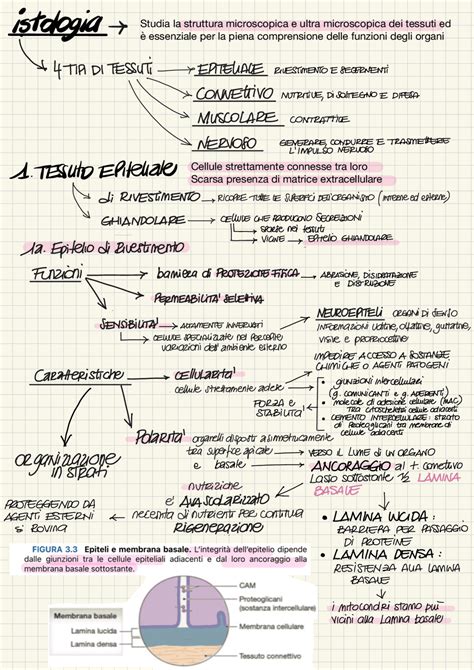 istologia → Studia la struttura microscopica e ultra microscopica dei tessuti ed
è essenziale per la piena comprensione delle funzioni degli organi
4 TIPI DI TESSUTI → EPITELIALE RIVESTIMENTO E SECERNENTI
CONNETTIVO NUTRITIVE, DI SOSTEGNO E DIFESA
MUSCOLARE CONTRATTILE
NERVOSO GENERARE, CONDURRE E TRASMETTERE
L'IMPULSO NERVOSO
1. TESSUTO EPITELIALE Cellule strettamente connesse tra loro
Scarsa presenza di matrice extracellulare
di RIVESTIMENTO → RICOPRE TUTTE LE SUPERFICI DELL'ORGANISMO (interne ed esterne)
GHIANDOLARE → CELLULE CHE PRODUCONO SECREZIONI
immerse nei tessuti
VIGNE → EPITELIO GHIANDOLARE
1a. Epitelio di Rivestimento
Funzioni → barriera di PROTEZIONE FISICA → ABRASIONE, DISIDRATAZIONE
E DISTRUZIONE
PERMEABILITA' SELETTIVA
SENSIBILITA' → ALTAMENTE INNERVATI
CELLULE SPECIALIZZATE nel percepire
variazioni dell'ambiente esterno
NEUROEPITELI ORGANI DI SENSO
INFORMAZIONI uditive, olfattive, gustative,
visive e
Caratteristiche → CELLULARITA'
cellule strettamente adese
FORZA E
STABILITA'
IMPEDIRE ACCESSO A SOSTANZE
CHIMICHE O AGENTI PATOGENI
• giunzioni intercellulari
(g. COMUNICANTI e g. ADERENTI)
• molecole di adesione cellulare (MAC)
TRA citoscheletri cellule adiacenti
• CEMENTO INTERCELLULARE: STRATO
di Proteoglicani tra membrane di
cellule adiacenti
POLARITA' organelli disposti asimmetricamente
tra superficie apicale → VERSO IL LUME DI UN ORGANO
e basale → ANCORAGGIO al t. connettivo
lasso sottostante LAMINA
BASALE
ORGANIZZAZIONE
IN STRATI
PROTEGGENDO DA
AGENTI ESTERNI
SI ROVINA
nutrizione
è AVASCOLARIZZATO
necessita di nutrienti per continua
RIGENERAZIONE
• LAMINA LUCIDA:
BARRIERA PER PASSAGGIO
DI PROTEINE
• LAMINA DENSA:
RESISTENZA ALLA LAMINA
BASALE
i mitocondri stanno più
vicini alla Lamina basale
FIGURA 3.3 Epiteli e membrana basale. L'integrità dell'epitelio dipende
dalle giunzioni tra le cellule epiteliali adiacenti e dal loro ancoraggio alla
membrana basale sottostante.
CAM
Proteoglicani
(sostanza intercellulare)
Membrana cellulare
Tessuto connettivo
Membrana basale
Lamina lucida
Lamina densa